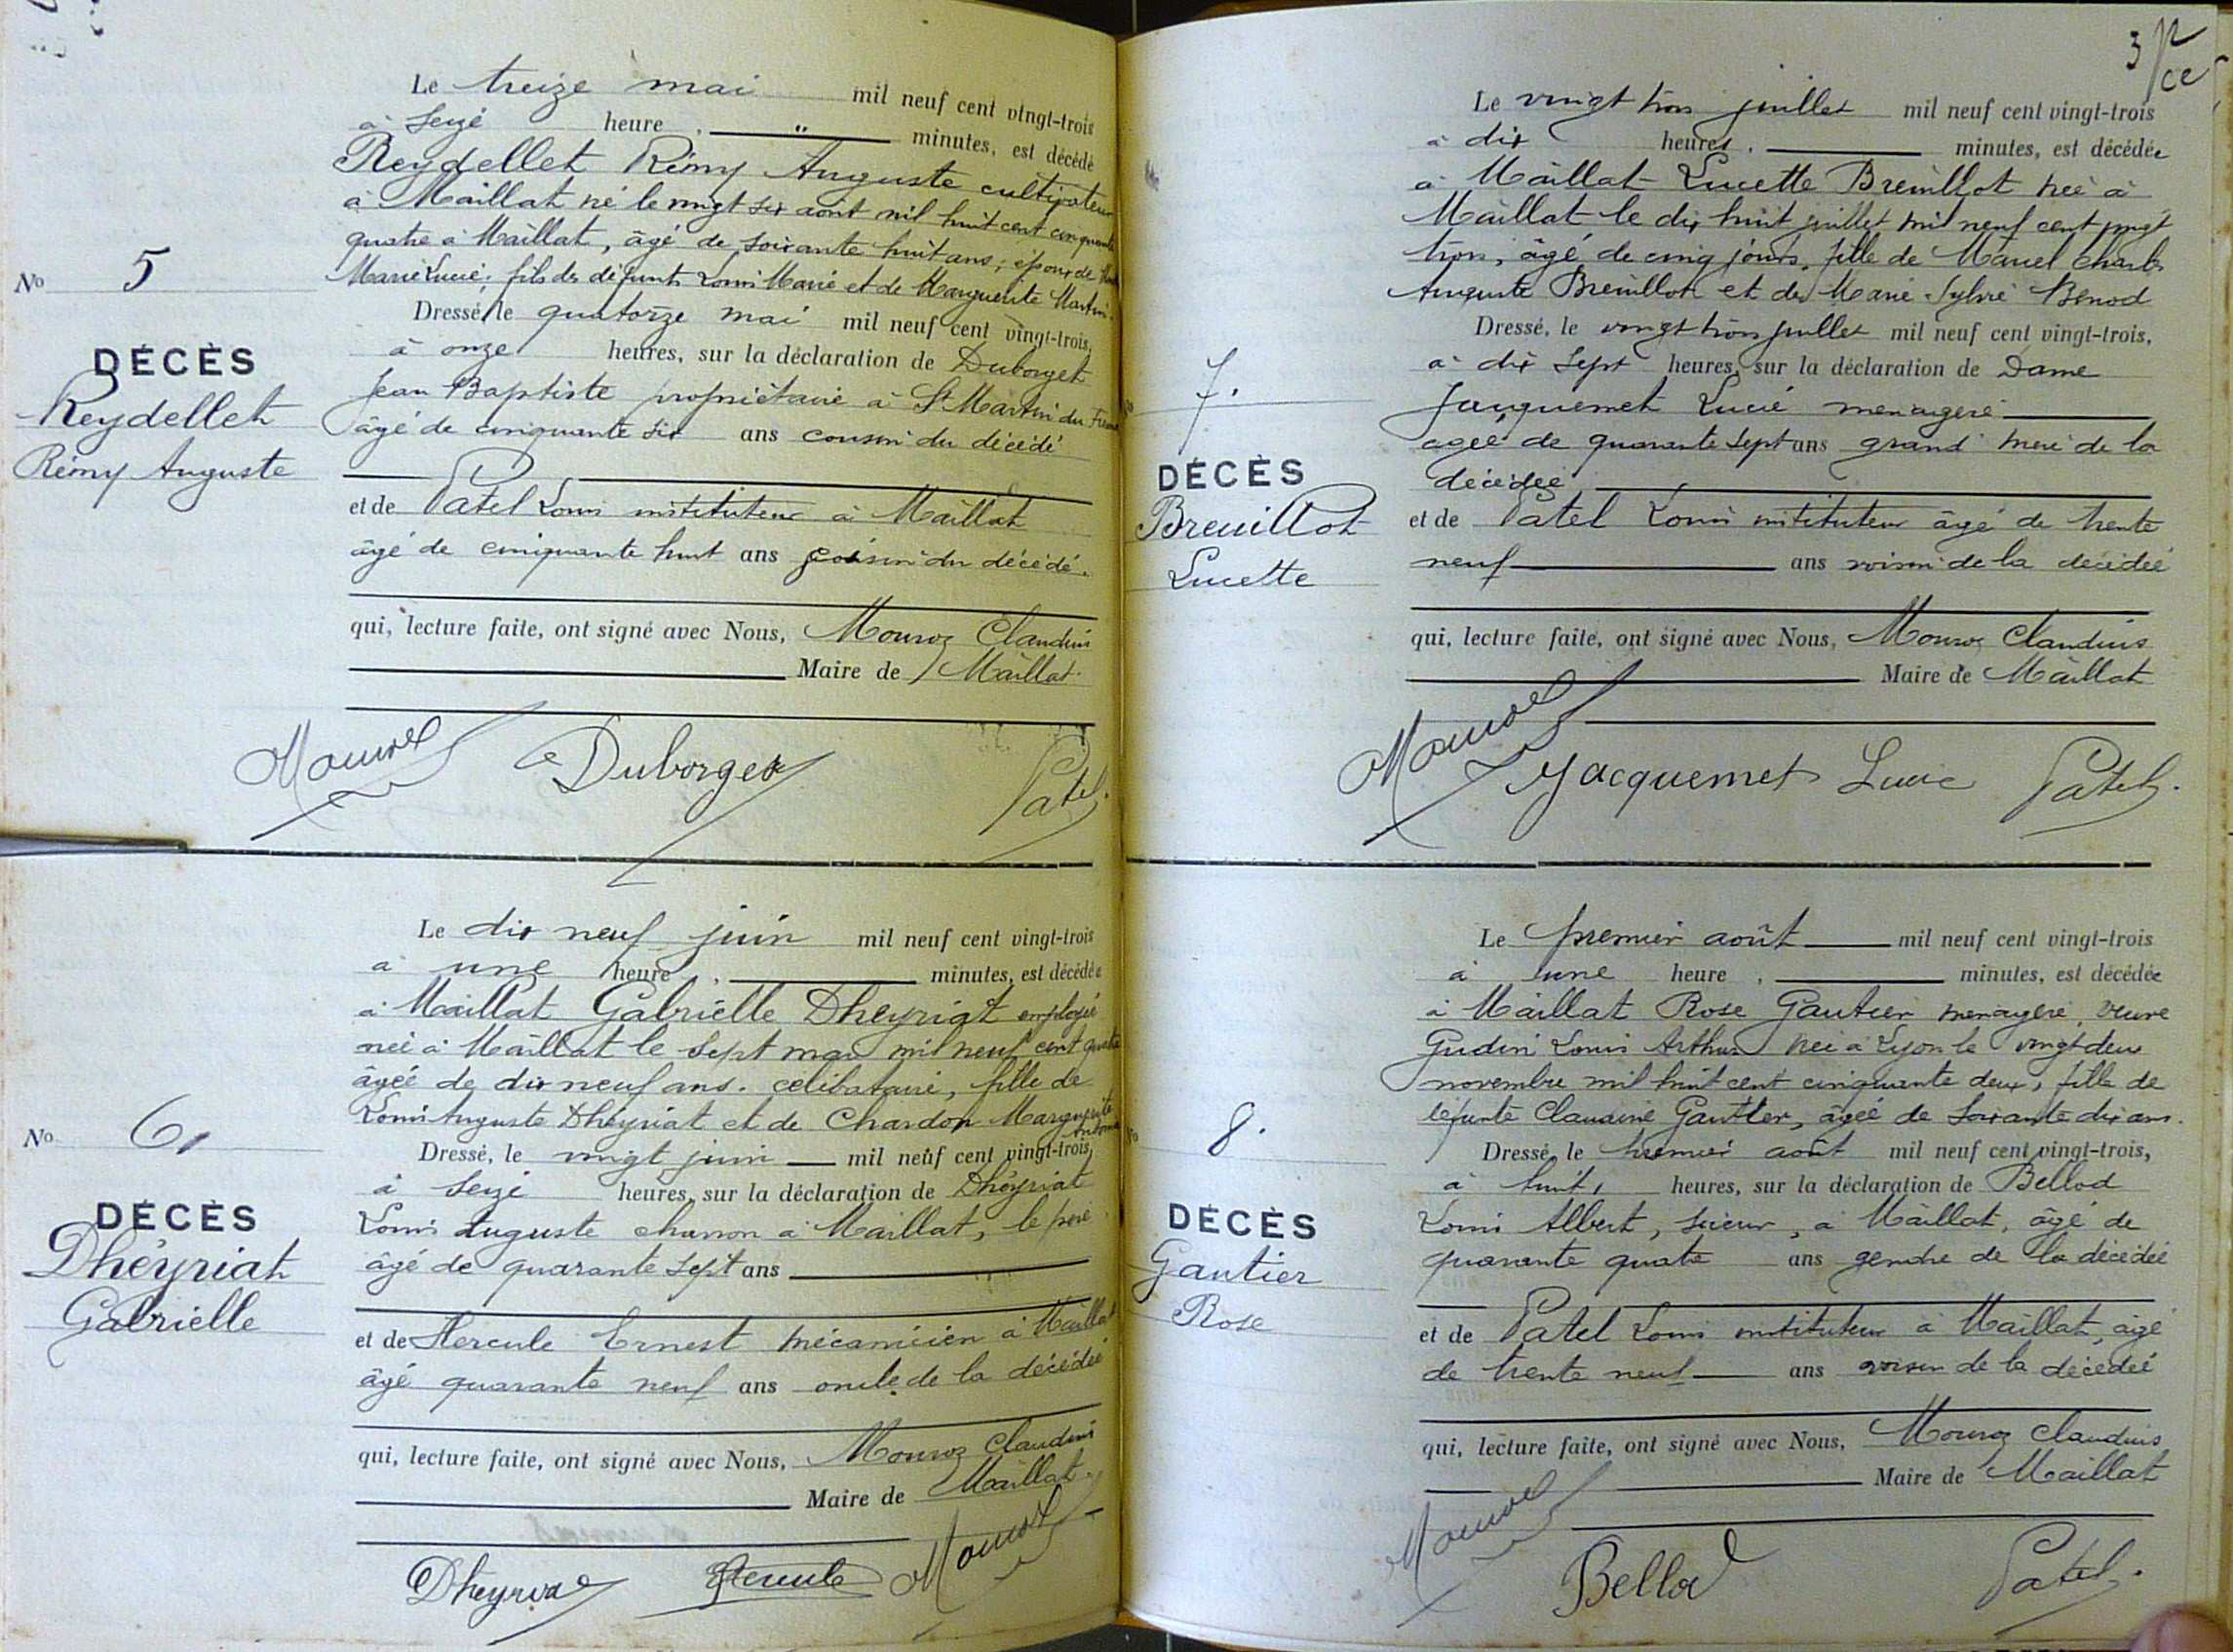 Le treize mai mil neuf cent vingt-trois
à Seize heure , " minutes, est décédé
Reydellet Rémy Auguste cultivateur
à Maillat né le vingt six août mil huit cent cinquante
quatre à Maillat, âgé de soixante huit ans; époux de
Marie Lucie; fils des défunts Louis Marie et de Marguerite Martin.
No 5
Dressé, le quatorze mai mil neuf cent vingt-trois,
à onze heures, sur la déclaration de Duborget
DÉCÈS
Jean Baptiste propriétaire à St Martin du Fresne
Reydellet
âgé de cinquante six ans cousin du décédé
Rémy Auguste
et de Patel Louis instituteur à Maillat
âgé de cinquante huit ans voisin du décédé.
qui, lecture faite, ont signé avec Nous, Mouroz Claudius
Maire de Maillat.
Mouroz Duborget Patel.
Le dix neuf juin mil neuf cent vingt-trois
à une heure , minutes, est décédée
à Maillat Gabrielle Dhéyriat employée
née à Maillat le sept mai mil neuf cent quatre
âgée de dix neuf ans. célibataire, fille de
Louis Auguste Dhéyriat et de Chardon Marguerite
No 6
Dressé, le vingt juin mil neuf cent vingt-trois,
à seize heures, sur la déclaration de Dhéyriat
DÉCÈS
Louis Auguste charron à Maillat, le père
Dhéyriat
âgé de quarante sept ans
Gabrielle
et de Hercule Ernest mécanicien à Maillat
âgé quarante neuf ans oncle de la décédée
qui, lecture faite, ont signé avec Nous, Mouroz Claudius
Maire de Maillat.
Dheyriat Hercule Mouroz
3
Le vingt trois juillet mil neuf cent vingt-trois
à dix heures , minutes, est décédée
à Maillat Lucette Breuillot née à
Maillat le dix huit juillet mil neuf cent vingt
trois, âgé de cinq jours, fille de Marcel Charles
Auguste Breuillot et de Marie Sylvie Benod
Dressé, le vingt trois juillet mil neuf cent vingt-trois,
7.
à dix sept heures, sur la déclaration de Dame
Jauquemet Lucie ménagère
âgée de quarante sept ans grand mère de la
DÉCÈS
décédée
Breuillot
et de Patel Louis instituteur âgé de trente
Lucette
neuf ans voisin de la décédée
qui, lecture faite, ont signé avec Nous, Mouroz Claudius
Maire de Maillat
Mouroz Jacquemet Lucie Patel.
Le premier août mil neuf cent vingt-trois
à une heure , minutes, est décédée
à Maillat Rose Gautier ménagère, veuve
Gudin Louis Arthur née à Lyon le vingt deux
novembre mil huit cent cinquante deux, fille de
défunte Claudine Gautier, âgée de soixante dix ans.
8.
Dressé, le premier août mil neuf cent vingt-trois,
à huit, heures, sur la déclaration de Bellod
DÉCÈS
Louis Albert, scieur, à Maillat, âgé de
Gautier
quarante quatre ans gendre de la décédée
Rose
et de Patel Louis instituteur à Maillat, âgé
de trente neuf ans voisin de la décédée
qui, lecture faite, ont signé avec Nous, Mouroz Claudius
Maire de Maillat
Mouroz Bellod Patel.